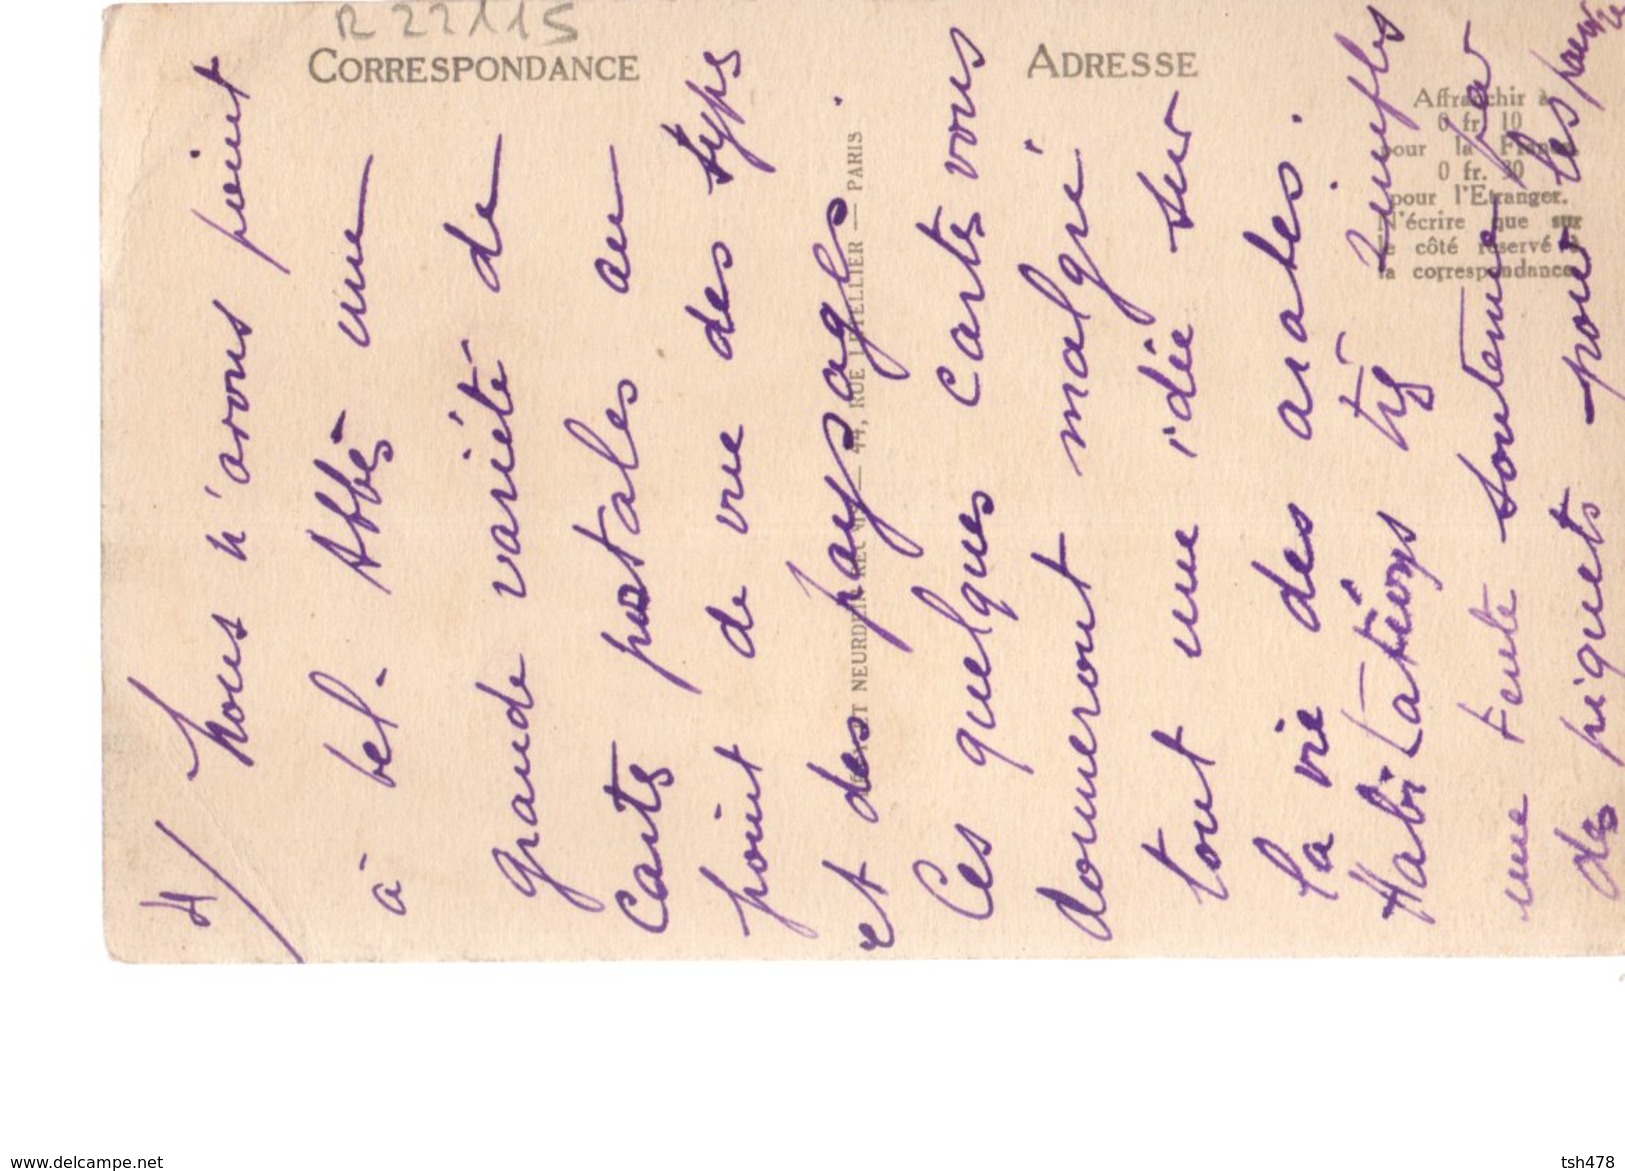 R 22115
CORRESPONDANCE
ADRESSE
Affranchir à
0 fr. 10
pour la France,
0 fr. 30
pour l'Etranger.
N'écrire que sur
le côté réservé à
la correspondance.
NEURDEIN RÉUNIS — 44, RUE LETELLIER — PARIS
4/ Nous n'avons point
à bel-Abbès une
grande variété de
Cartes postales au
point de vue des types
et des paysages.
Ces quelques cartes vous
donneront malgré
tout une idée sur
la vie des arabes.
Habitations très simples
une tente soutenue par
des piquets pour les pauvre
www.delcampe.net
tsh478